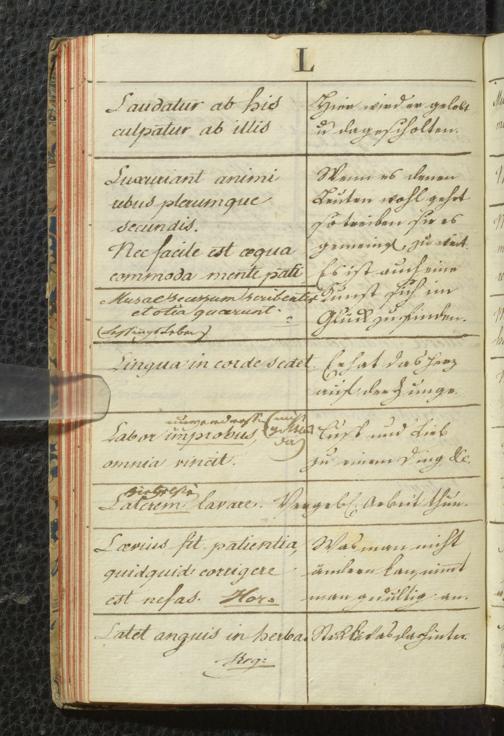 L
Laudatur ab his
culpatur ab illis
Hier wird er gelobt
u da gescholten.
Luxuriant animi
rebus plerumque
secundis.
Nec facile est æqua
commoda mente pati
Wenn es denen
Leuten wohl geht
so treiben sie es
gemeinigl. zu weit.
Es ist auch eine
Kunst sich im
Glück zu finden.
Musae secessum scribentis
et otia quaerunt.
(Lessings Leben)
Lingua in corde sedet.
Er hat das Herz
auf der Zunge.
Labor improbus
omnia vincit.
Lust und Lieb
zu einem Ding &c.
Laterem lavare.
Vergebl. Arbeit thun.
Lævius fit patientia,
quidquid corrigere
est nefas. Hor.
Was man nicht
ändern kan, nimt
man gedultig an.
Latet anguis in herba.
Virg:
Steckt etwas dahinter.